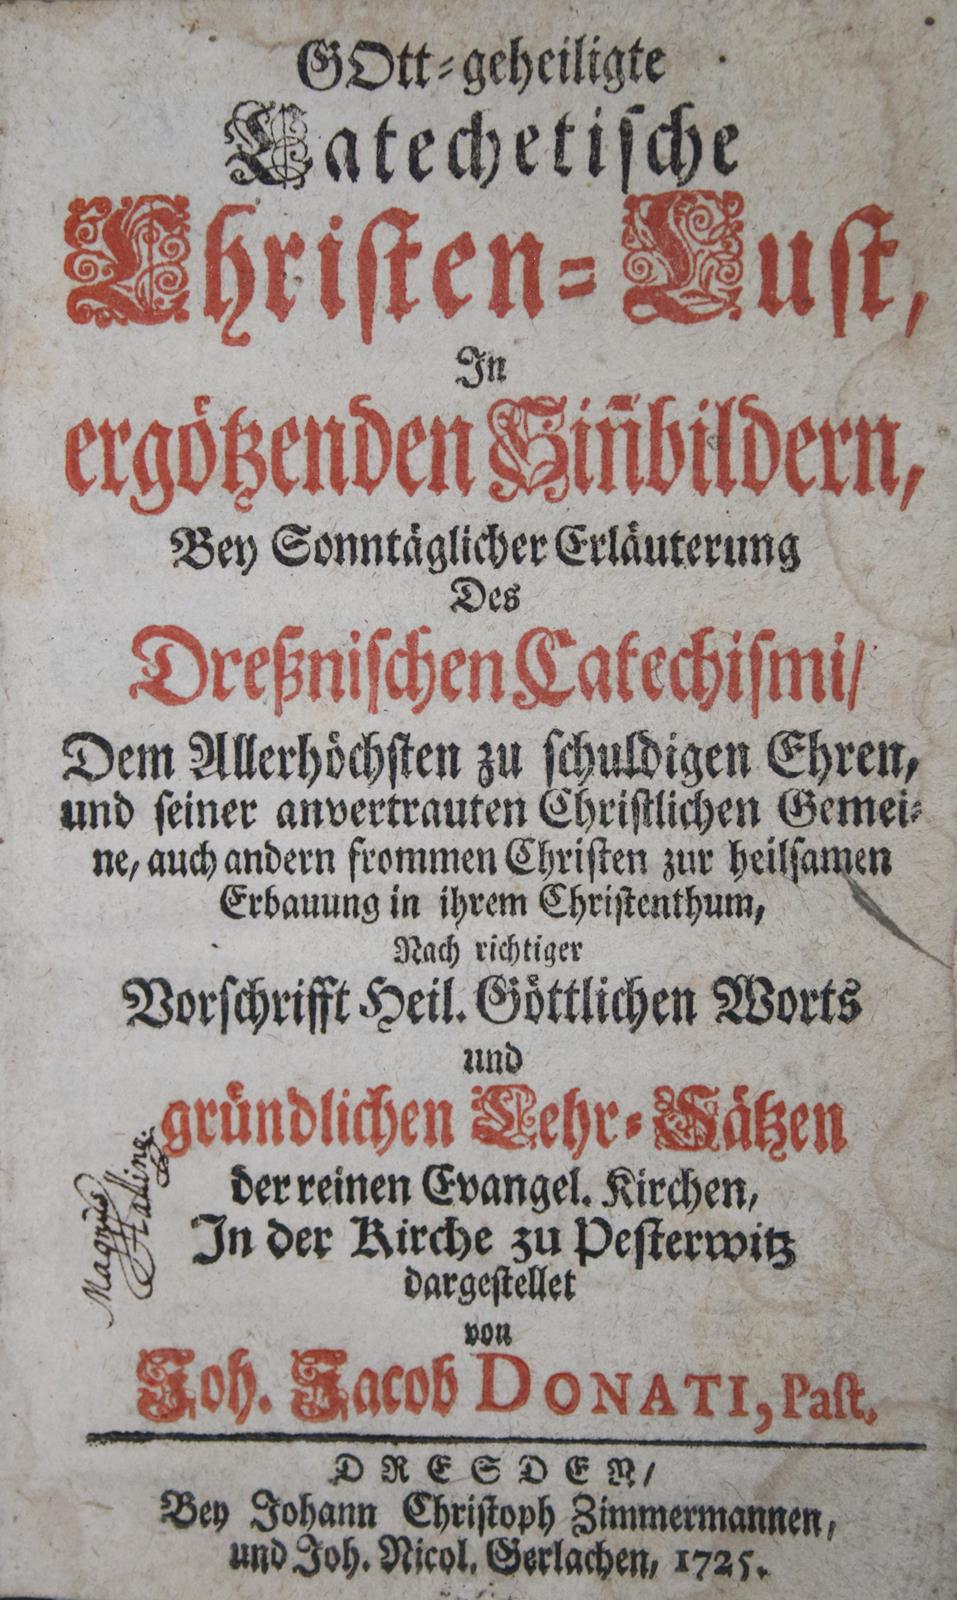 GOtt-geheiligte
Catechetische
Christen-Lust,
In
ergötzenden Sin̄bildern,
Bey Sonntäglicher Erläuterung
Des
Dreßnischen Catechismi/
Dem Allerhöchsten zu schuldigen Ehren,
und seiner anvertrauten Christlichen Gemei-
ne, auch andern frommen Christen zur heilsamen
Erbauung in ihrem Christenthum,
Nach richtiger
Vorschrifft Heil. Göttlichen Worts
und
gründlichen Lehr-Sätzen
der reinen Evangel. Kirchen,
In der Kirche zu Pesterwitz
dargestellet
von
Joh. Jacob DONATI, Past.
Magnus
DRESDEN/
Bey Johann Christoph Zimmermannen,
und Joh. Nicol. Gerlachen, 1725.